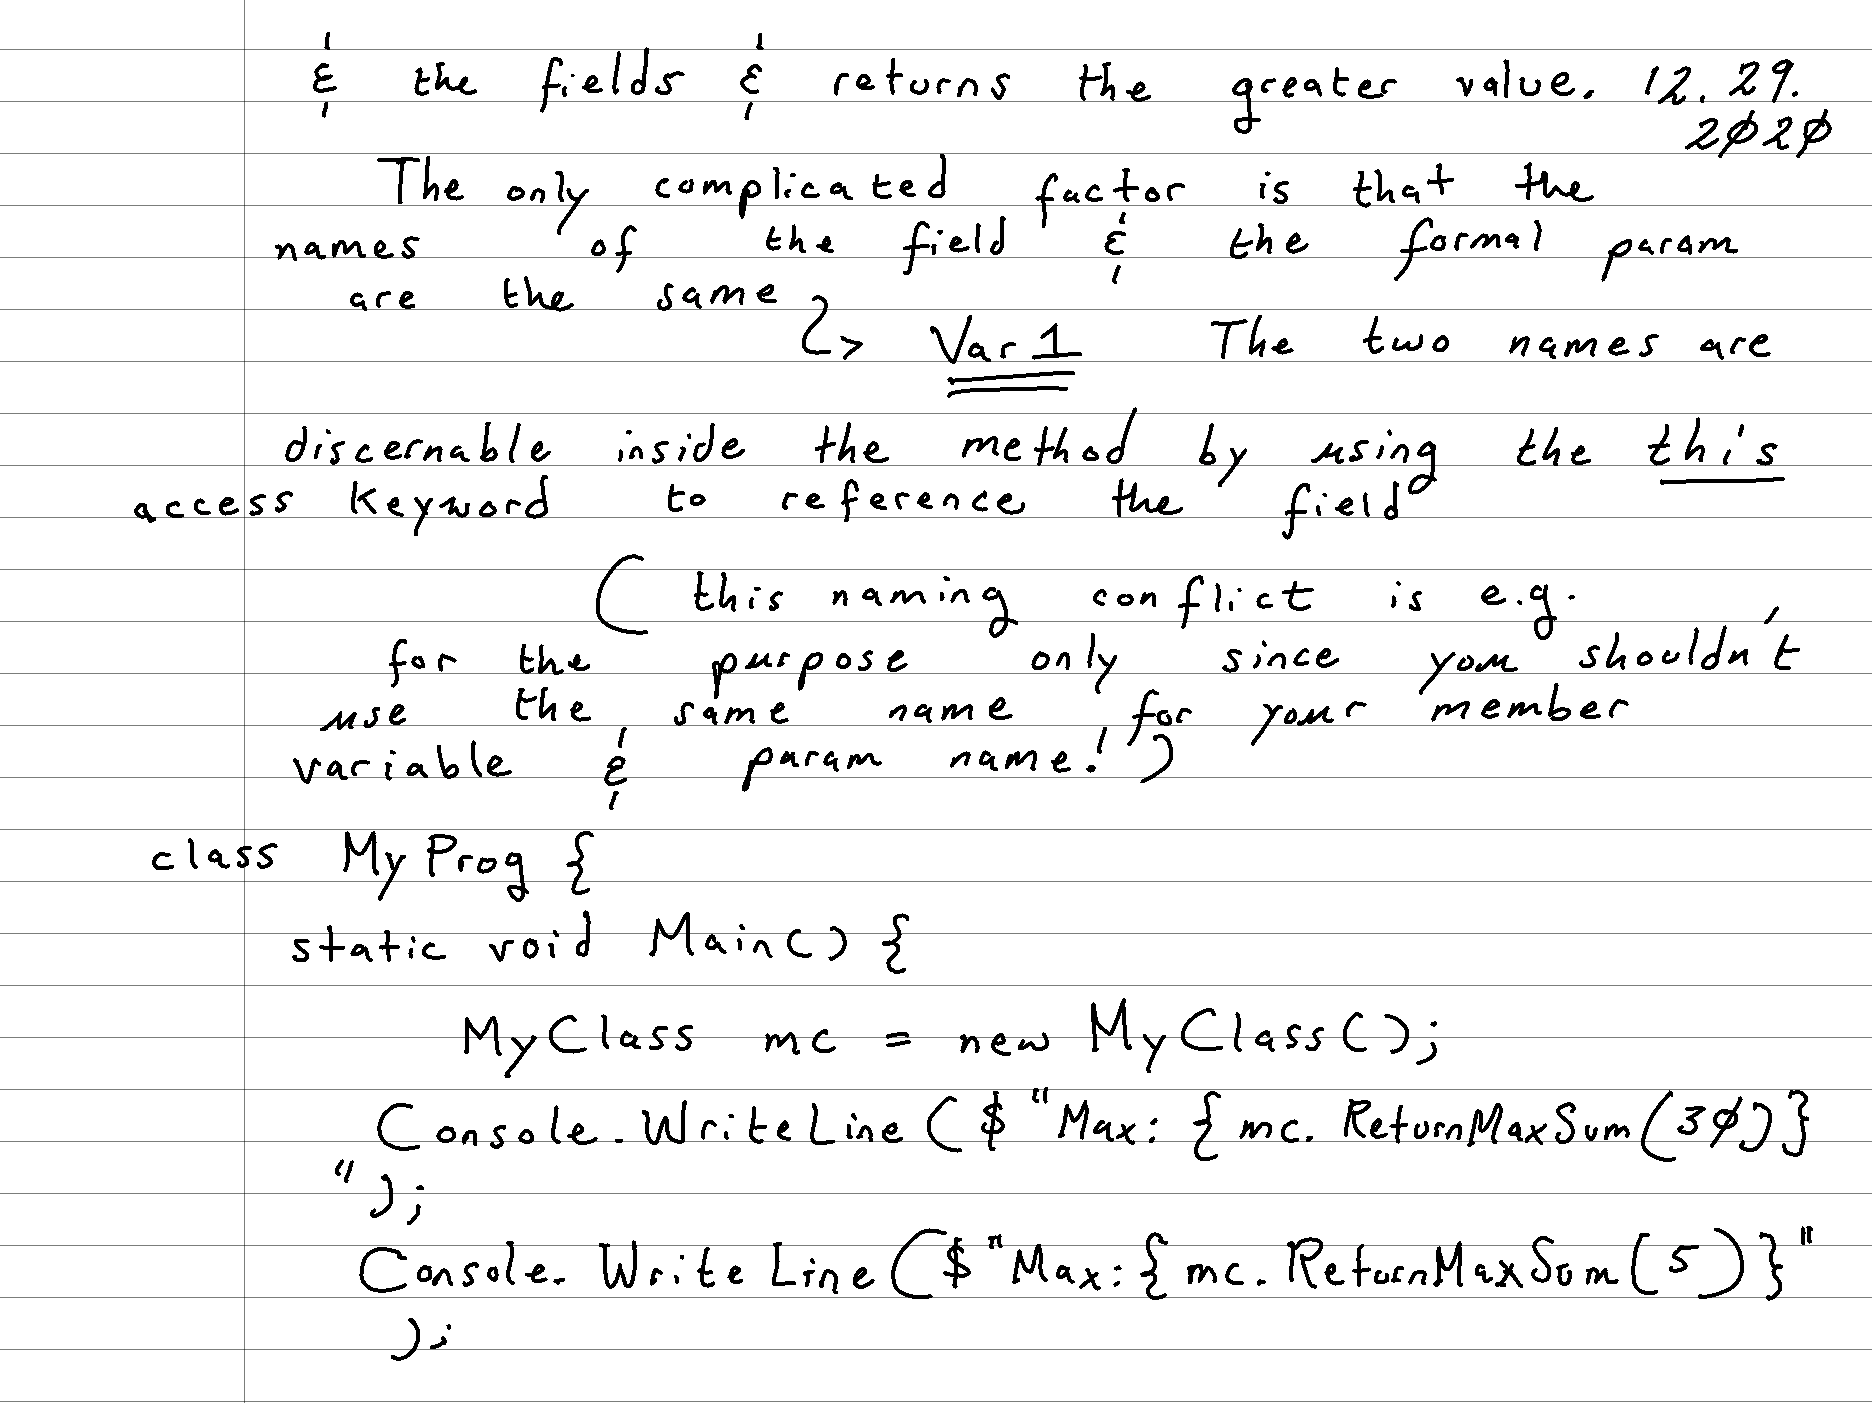 & the fields & returns the greater value. 12.29.
2020
The only complicated factor is that the
names of the field & the formal param
are the same
↳ Var1 The two names are
discernable inside the method by using the this
access keyword to reference the field
( this naming conflict is e.g.
for the purpose only since you shouldn't
use the same name for your member
variable & param name! )
class MyProg {
static void Main() {
MyClass mc = new MyClass();
Console.WriteLine($"Max: {mc.ReturnMaxSum(30)}
");
Console.WriteLine($"Max:{mc.ReturnMaxSum(5)}"
);